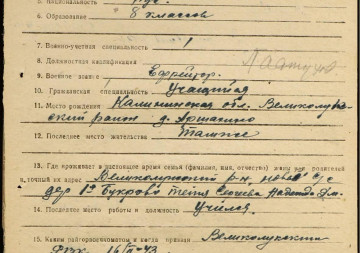 5. Национальность Рус.
6. Образование 8 классов
7. Военно-учетная специальность
8. Должностная квалификация
9. Военное звание Ефрейтор.
10. Гражданская специальность Учащийся
11. Место рождения Калининская обл. Великолук
ский район д.
12. Последнее место жительства
13. Где проживает в настоящее время семья (фамилия, имя, отчество) жены или родителей
точный их адрес Великолукский р-н, с/с
дер. Букрово тётя Надежда
14. Последнее место работы и должность Учился.
15. Каким райгорвоенкоматом и когда призван Великолукским
РВК 16